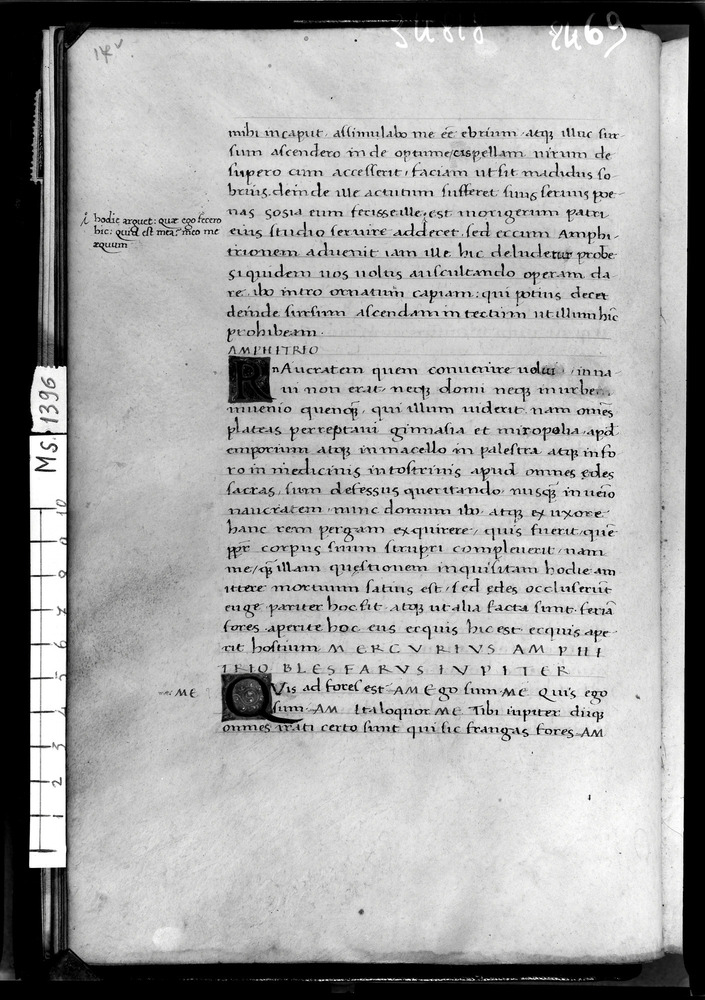 14v
24818 2469
mihi in caput. assimulabo me eē ebrium. atqʒ illuc sur
sum ascendero inde optume aspellam uirum de
supero cum accesserit, faciam ut sit madidus so
brius. deinde ille actutum sufferet suus seruus poe
nas sosia eum fecisse ille, est morigerum patri
eius studio seruire addecet. sed eccum Amphi
trionem aduenit iam ille hic deludetur probe
siquidem uos uoltis auscultando operam da
re. ibo intro ornatum capiam: qui potius decet
deinde sursum ascendam in tectum ut illum hīc
prohibeam.
hodie arguet: quæ ego fecero
hic: quid est mea: meo me
æquum
AMPHITRIO
NAucratem quem conuenire uolui in na
ui non erat. neqʒ domi neqʒ in urbe
inuenio quenqʒ. qui illum uiderit. nam omēs
plateas perreptaui gimnasia et miropolia. apd
emporium atqʒ in macello in palestra atqʒ in fo
ro in medicinis in tostrinis apud omnes edes
sacras. sum defessus queritando. nusqʒ inueīo
naucratem. nunc domum ibo. atqʒ ex uxore
hanc rem pergam exquirere, quis fuerit, quē
ppr corpus suum strupri compleuerit. nam
me, qʒ illam questionem inquisitam hodie am
ittere mortuum satius est. sed edes occluserūt
euge pariter hoc fit. atqʒ ut alia facta sunt. feriā
fores. aperite hoc. eus ecquis hic est ecquis ape
rit hostium MERCVRIVS AMPHI
TRIO BLESFARVS IVPITER
ME
QVis ad fores est AM Ego sum ME Quis ego
sum. AM Ita loquor ME Tibi iupiter diiqʒ
omnes irati certo sunt qui sic frangas fores AM
Ms. 1396
1 2 3 4 5 6 7 8 9 10